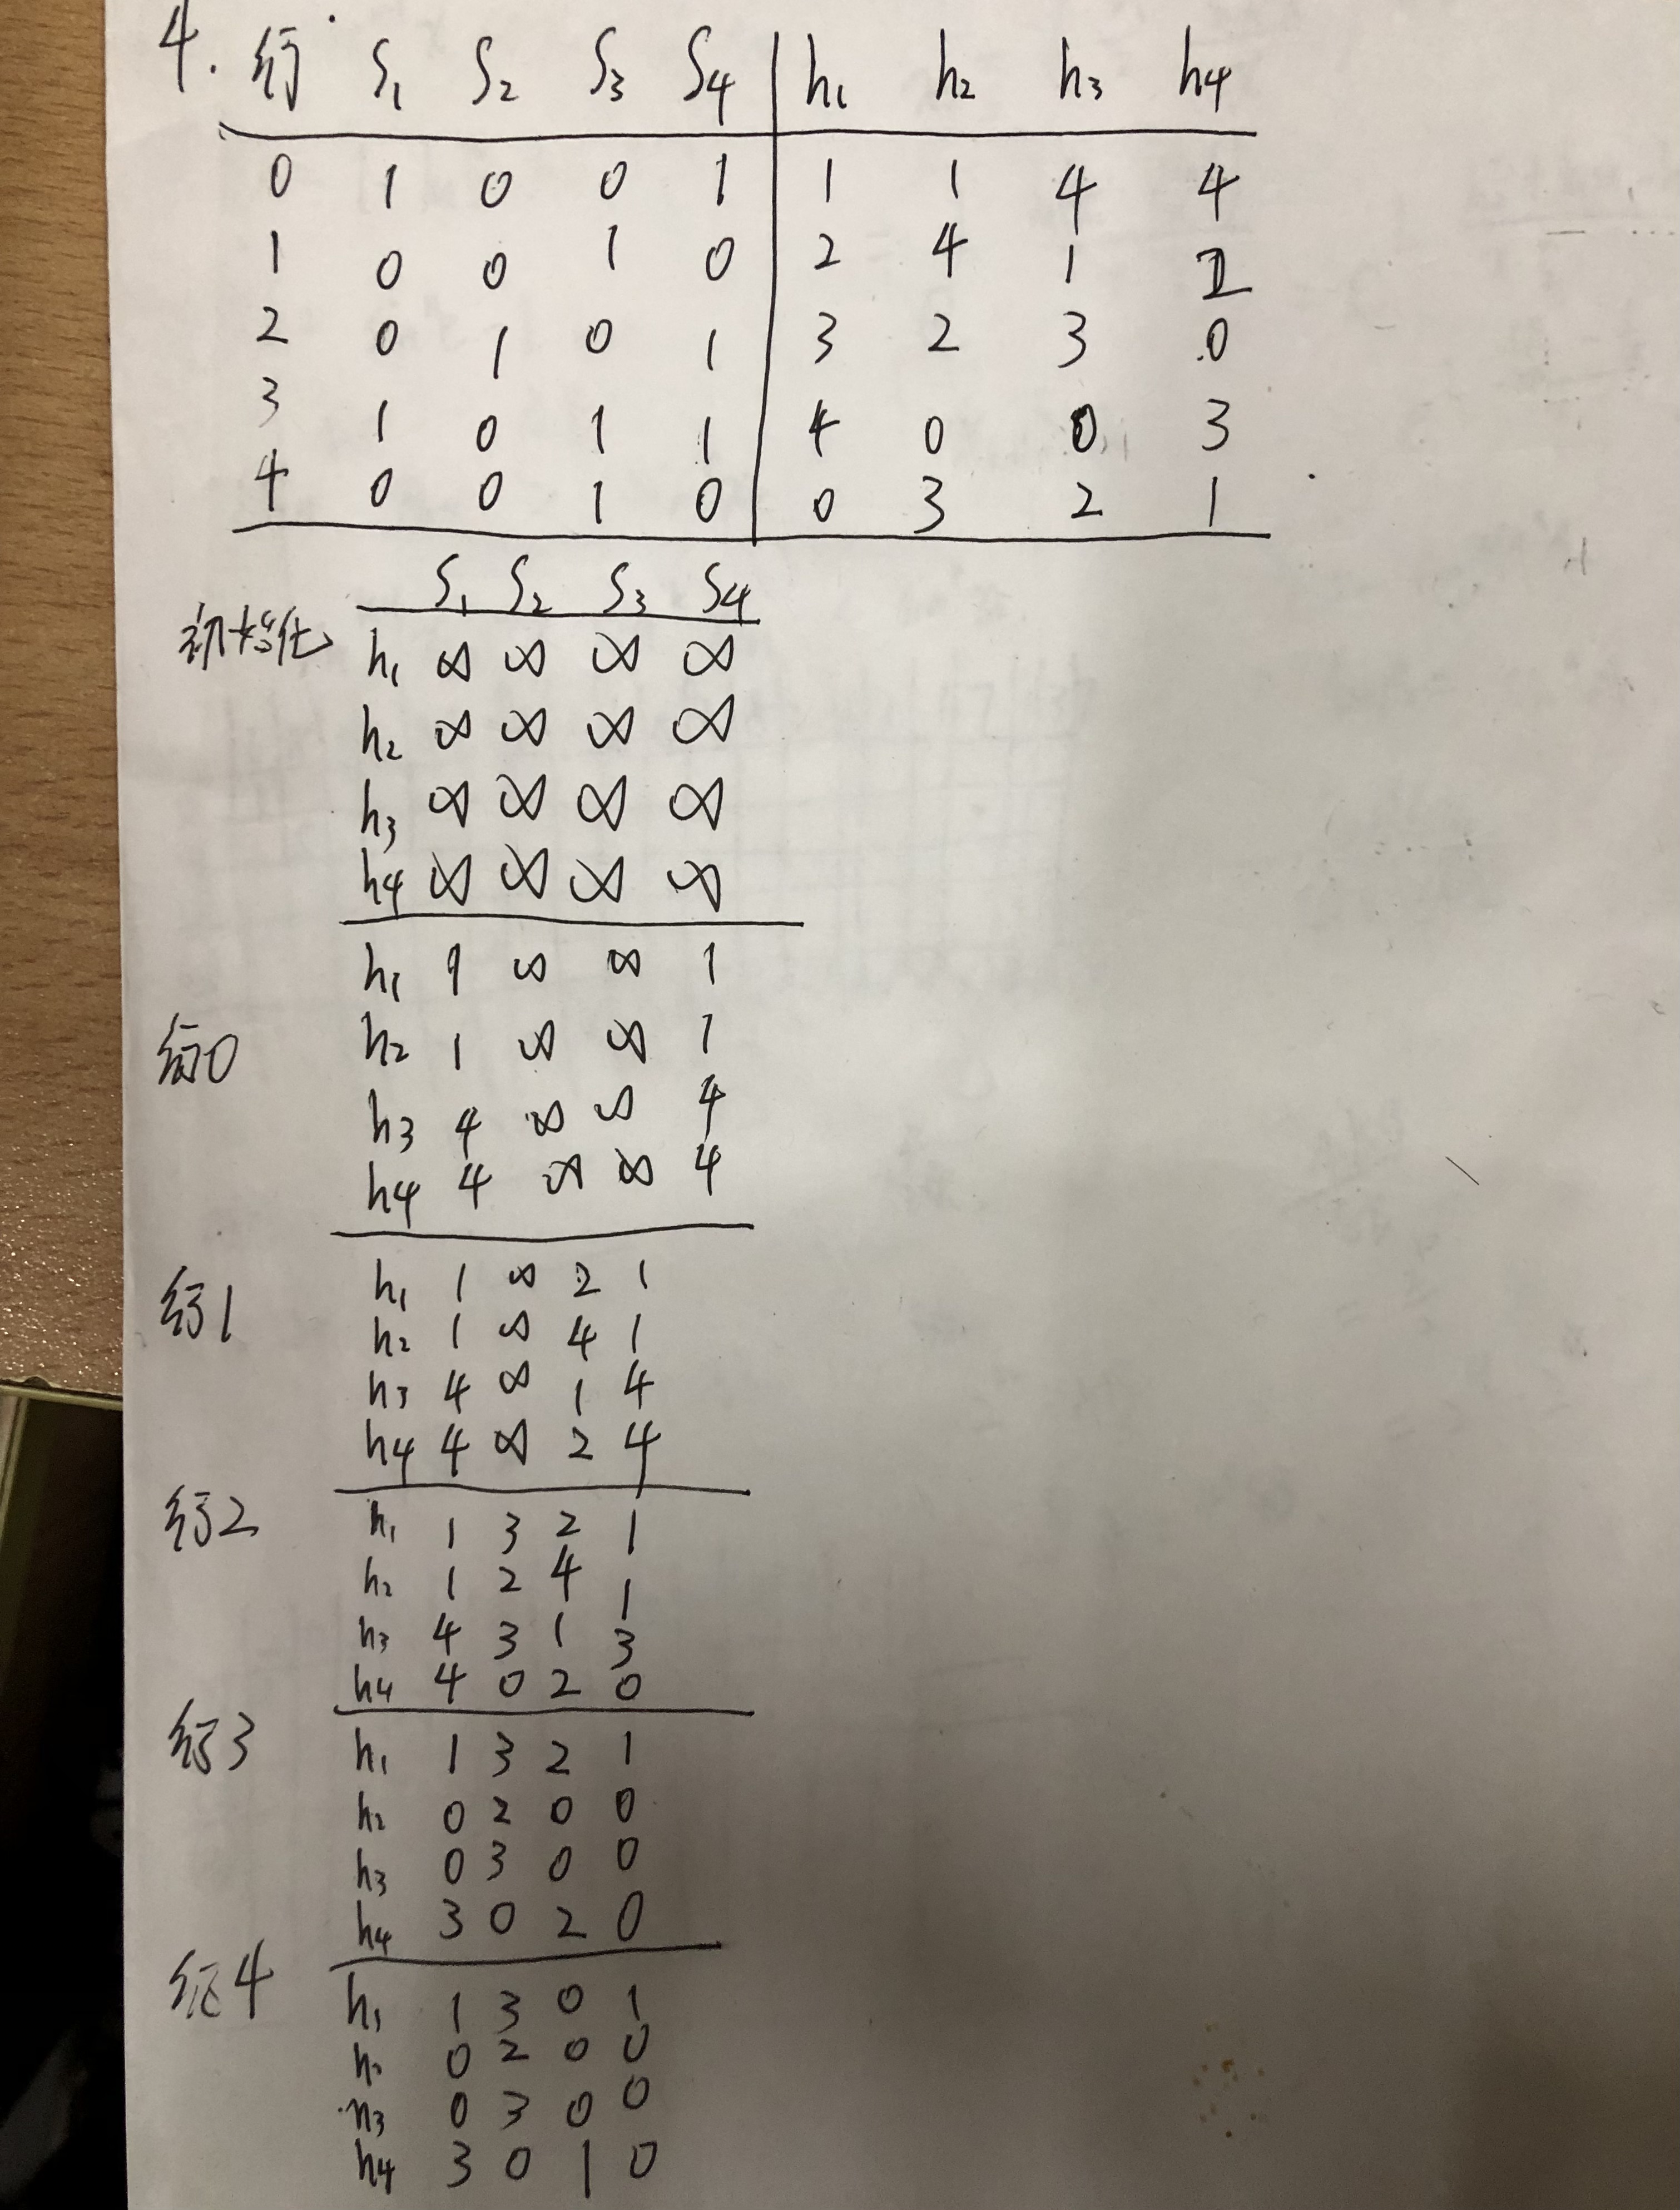 4. 行 S1 S2 S3 S4 h1 h2 h3 h4
0 1 0 0 1 1 1 4 4
1 0 0 1 0 2 4 1 2
2 0 1 0 1 3 2 3 0
3 1 0 1 1 4 0 0 3
4 0 0 1 0 0 3 2 1
S1 S2 S3 S4
初始化 h1 ∞ ∞ ∞ ∞
h2 ∞ ∞ ∞ ∞
h3 ∞ ∞ ∞ ∞
h4 ∞ ∞ ∞ ∞
h1 1 ∞ ∞ 1
行0 h2 1 ∞ ∞ 1
h3 4 ∞ ∞ 4
h4 4 ∞ ∞ 4
行1 h1 1 ∞ 2 1
h2 1 ∞ 4 1
h3 4 ∞ 1 4
h4 4 ∞ 2 4
行2 h1 1 3 2 1
h2 1 2 4 1
h3 4 3 1 3
h4 4 0 2 0
行3 h1 1 3 2 1
h2 0 2 0 0
h3 0 3 0 0
h4 3 0 2 0
行4 h1 1 3 0 1
h2 0 2 0 0
h3 0 3 0 0
h4 3 0 1 0